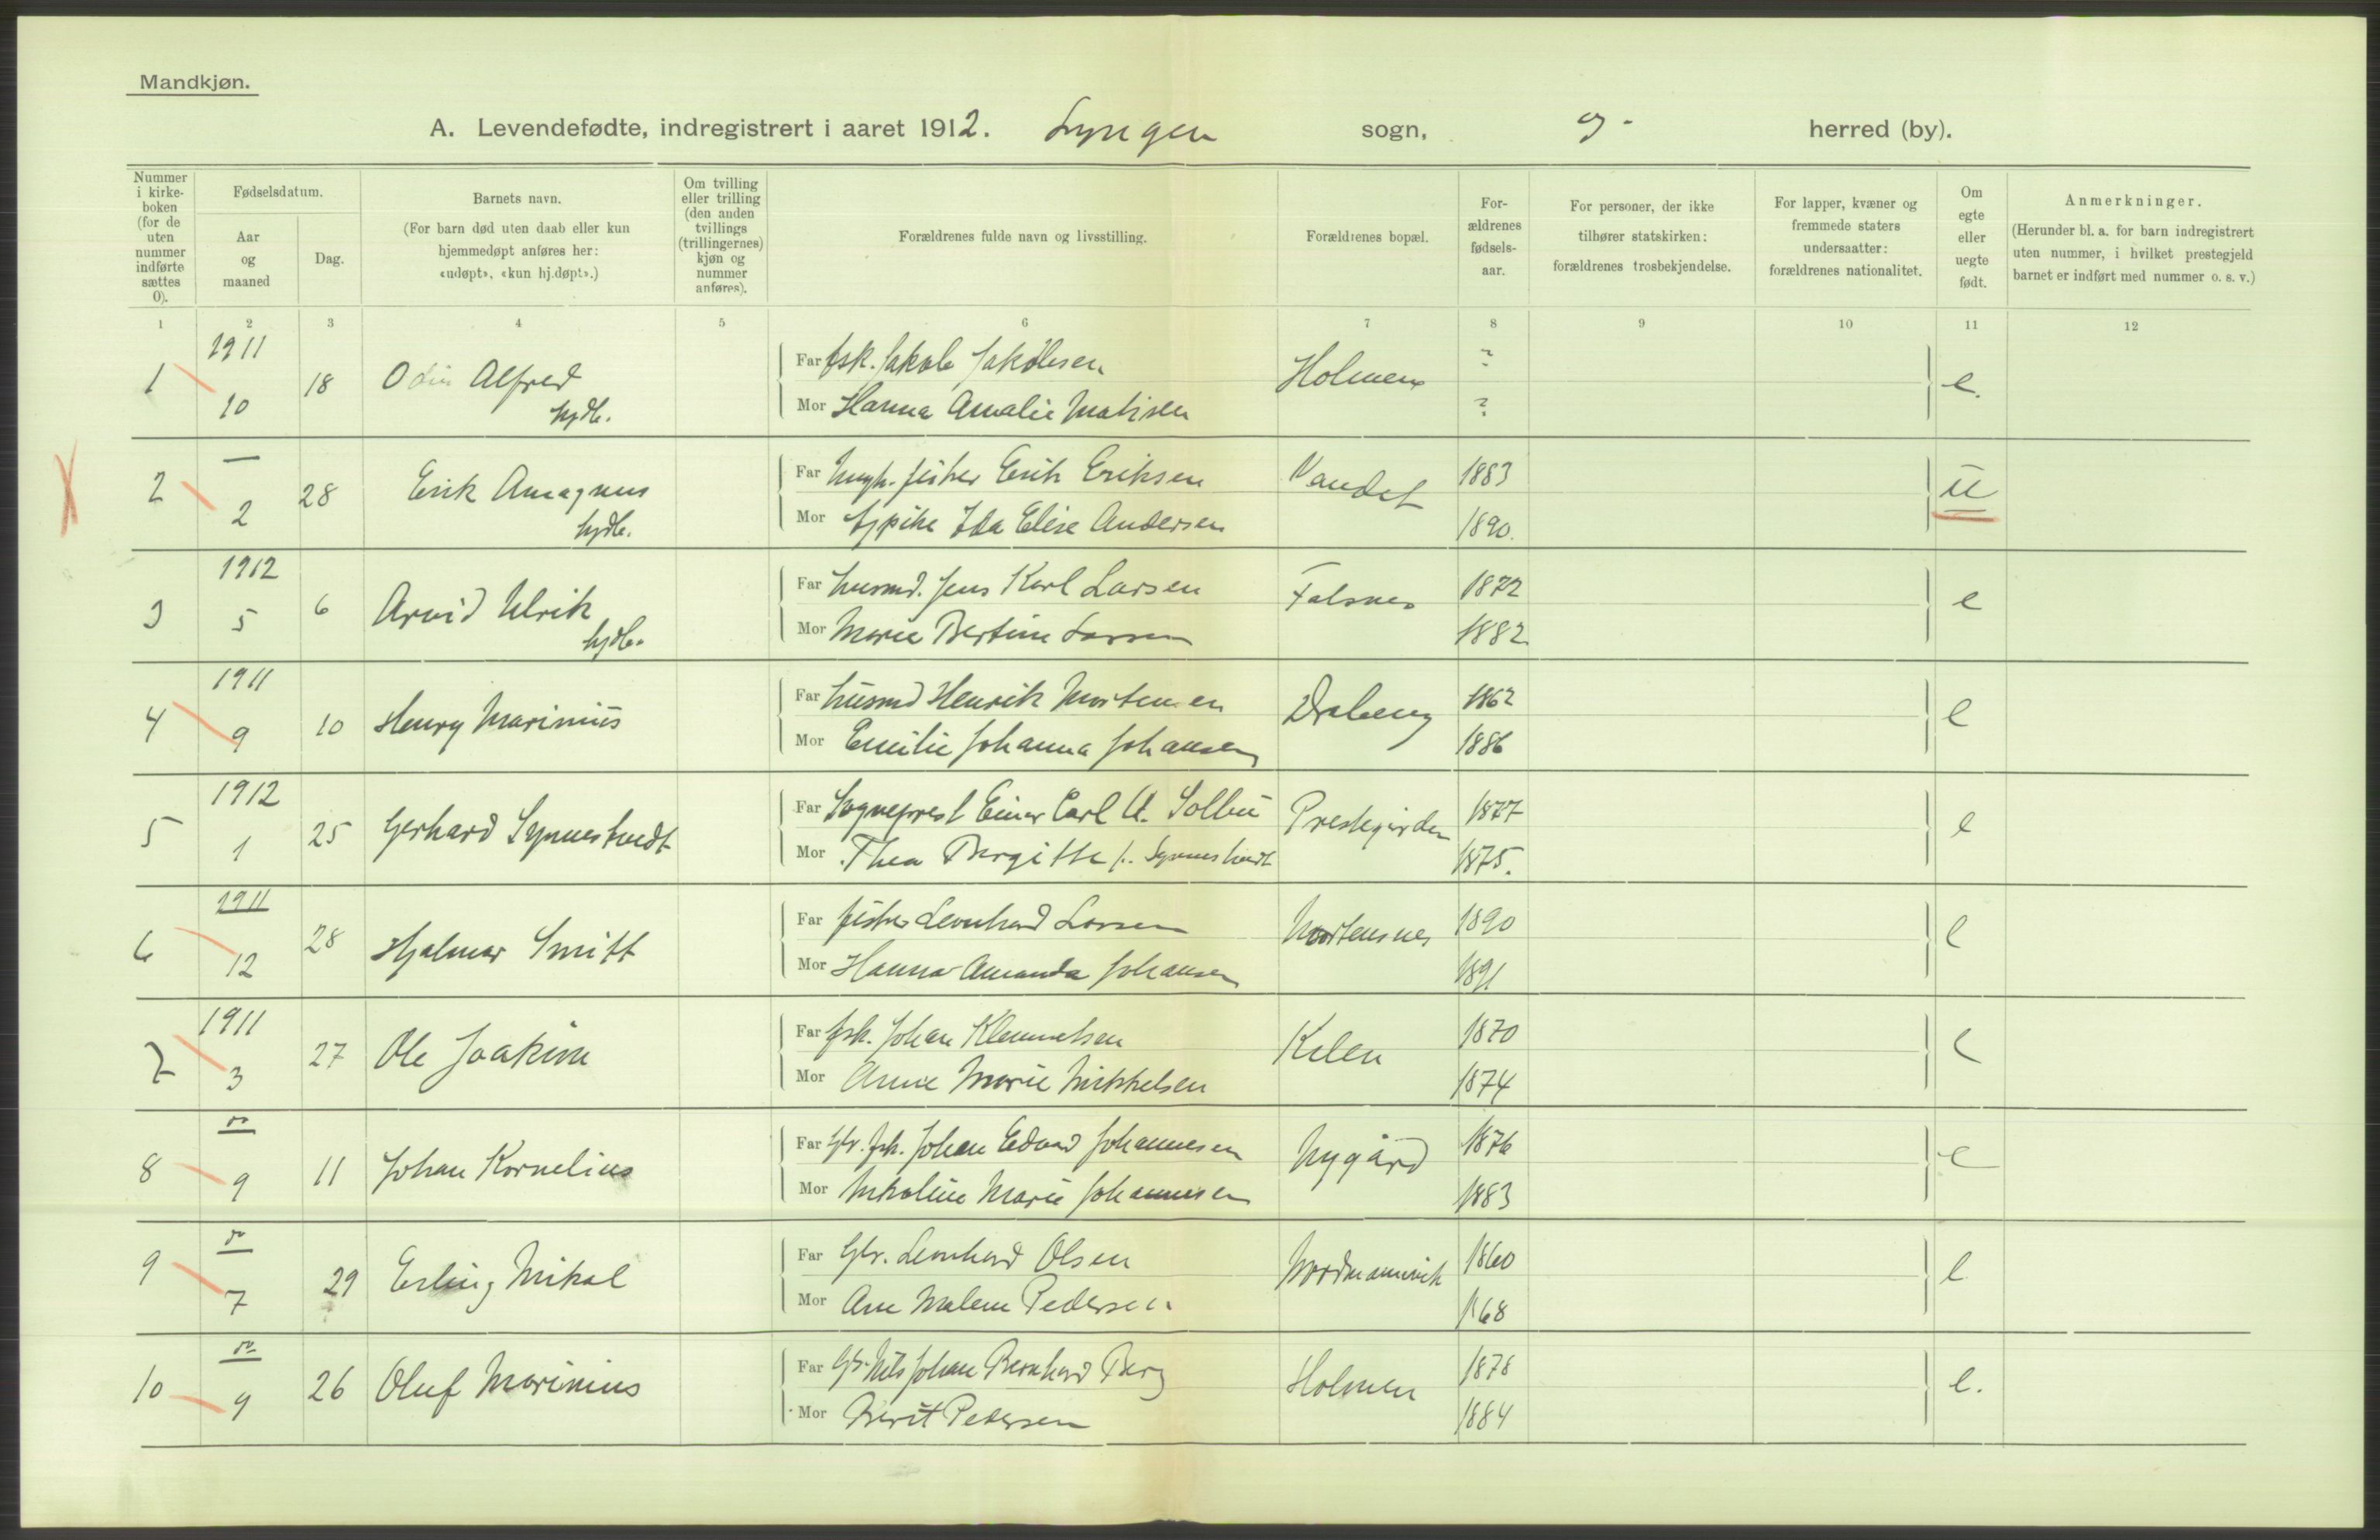 Mandkjøn.
A. Levendefødte, indregistrert i aaret 1912. Lyngen sogn, herred (by).
Nummer i kirke-boken (for de uten nummer indførte sættes 0).
Fødselsdatum.
Aar og maaned
Dag.
Barnets navn.
(For barn død uten daab eller kun hjemmedøpt anføres her: «udøpt», «kun hj.døpt».)
Om tvilling eller trilling (den anden tvillings (trillingernes) kjøn og nummer anføres).
Forældrenes fulde navn og livsstilling.
Forældrenes bopæl.
For-ældrenes fødsels-aar.
For personer, der ikke tilhører statskirken: forældrenes trosbekjendelse.
For lapper, kvæner og fremmede staters undersaatter: forældrenes nationalitet.
Om egte eller uegte født.
Anmerkninger.
(Herunder bl. a. for barn indregistrert uten nummer, i hvilket prestegjeld barnet er indført med nummer o. s. v.)
1 2 3 4 5 6 7 8 9 10 11 12
1 1911 10 18 Odin Alfred hjdb. Far fsk. Jakob Jakobsen Holmen ? e.
Mor Hanna Amalie Matisen ?
2 — 2 28 Erik Amagnus hjdb. Far Ungk. fisker Erik Eriksen Vandet 1883 u
Mor Tjpike Ida Elise Andersen 1890.
3 1912 5 6 Arvid Ulrik hjdb. Far husmd. Jens Karl Larsen Falsnes 1872 e
Mor Marie Bertine Larsen 1882
4 1911 9 10 Henry Marinius Far husmd Henrik Mortensen 1862 e
Mor Emilie Johanna Johansen 1886
5 1912 1 25 Gerhard Synnestvedt Far Sogneprest Einar Carl A. Solbu Prestegården 1877 e
Mor Thea Birgitte f. Synnestvedt 1875.
6 1911 12 28 Hjalmar Smitt Far fisker Leonhard Larsen Mortensnes 1890 e
Mor Hanna Amanda Johansen 1891
7 1911 3 27 Ole Joakim Far fsk. Johan Klemmetsen Kilen 1870 e
Mor Anne Marie Mikkelsen 1874
8 do 9 11 Johan Kornelius Far gbr. fsk. Johan Edvard Johannesen Nygård 1876 e
Mor Nikoline Marie Johannesen 1883
9 do 7 29 Erling Mikal Far Gbr. Leonhard Olsen Nordmannvik 1860 e
Mor Ane Malene Pedersen 1868
10 do 9 26 Oluf Marinius Far Gbr. Nils Johan Bernhard Berg Holmen 1878 e.
Mor Berit Pedersen 1884